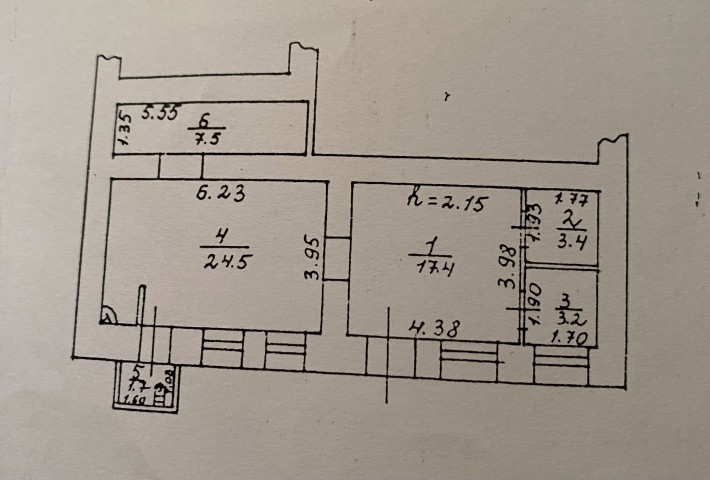 5.55
1.35
6
7.5
6.23
4
24.5
3.95
h=2.15
1
17.4
3.98
4.38
1.77
1.93
2
3.4
1.90
3
3.2
1.70
5
1.7
1.08
1.60